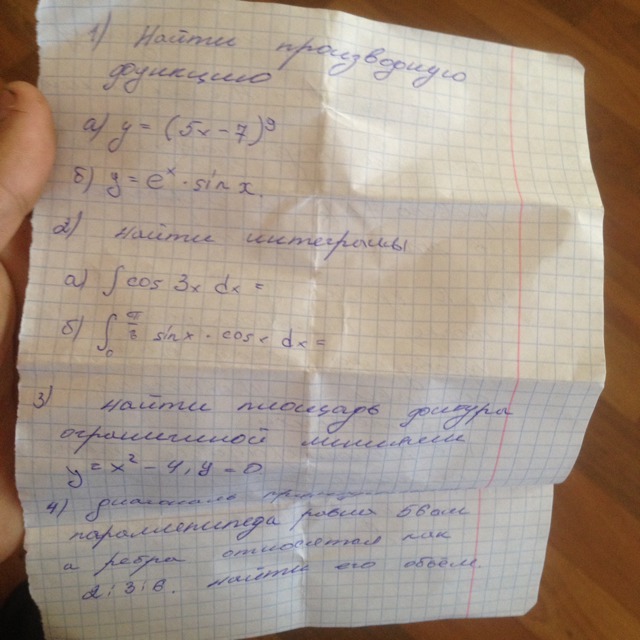 1) Найти производную
функцию
а) y = (5x - 7)⁹
б) y = eˣ · sin x.
2) найти интегралы
а) ∫ cos 3x dx =
б) ∫₀ sin x · cos x dx =
3) найти площадь фигура
ограниченной линиями
y = x² - 4, y = 0
4) диагональ
параллепипеда равна 56см
а ребра относятся как
2:3:6. найти его объём.